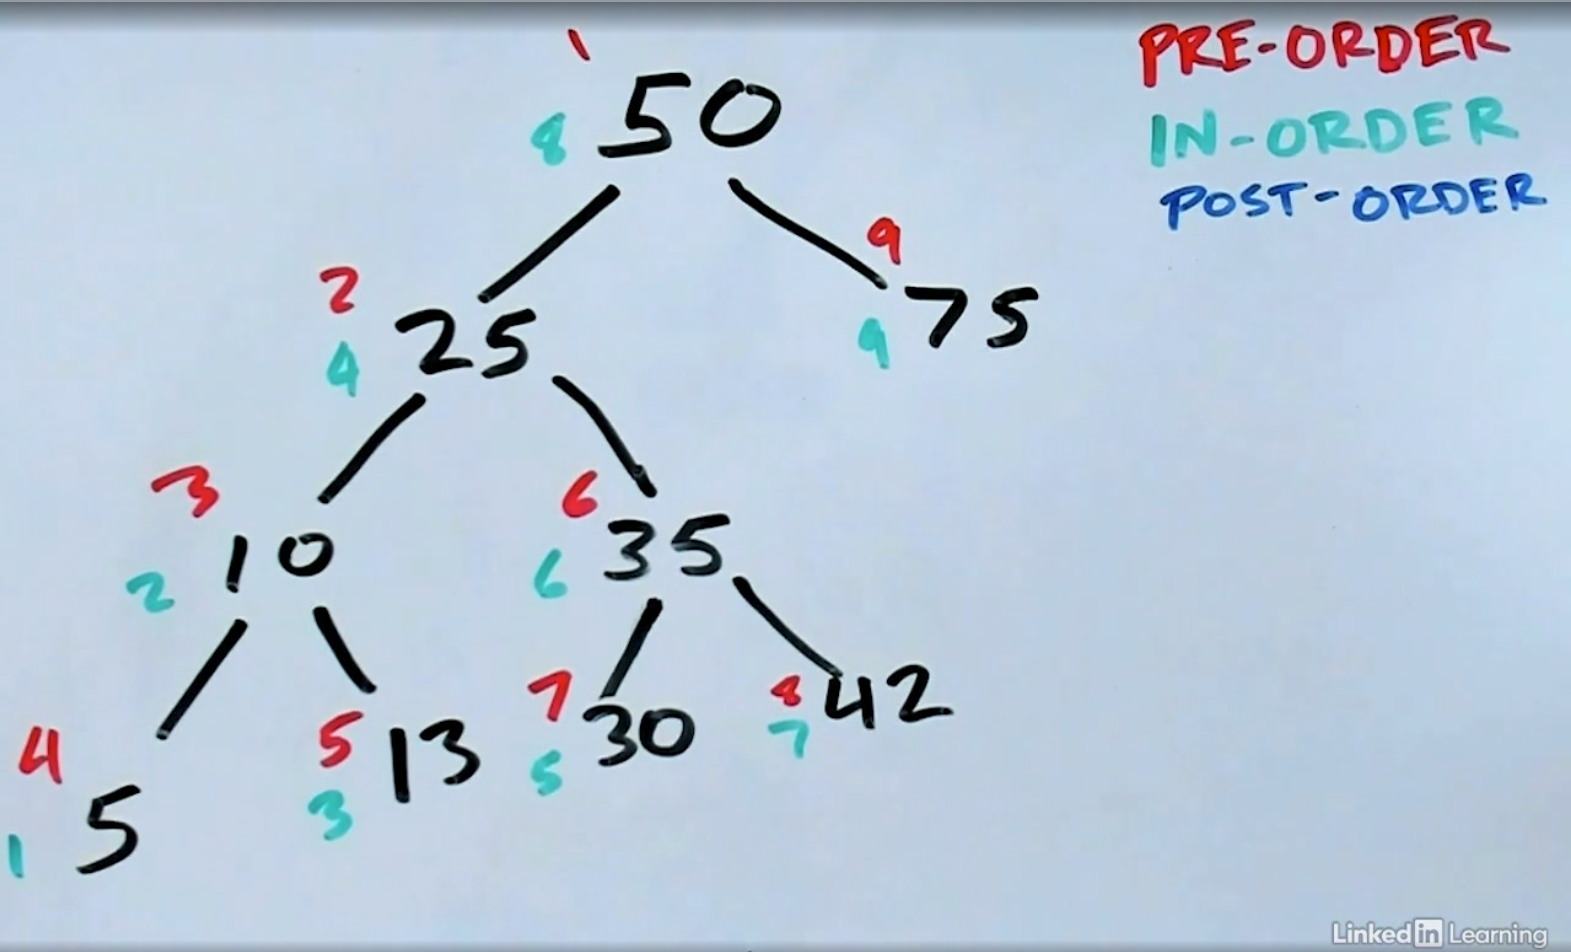 PRE-ORDER
IN-ORDER
POST-ORDER
1
8 50
9
9 75
2
4 25
3
2 10
6
6 35
4
1 5
5
3 13
7
5 30
8
7 42
LinkedIn Learning